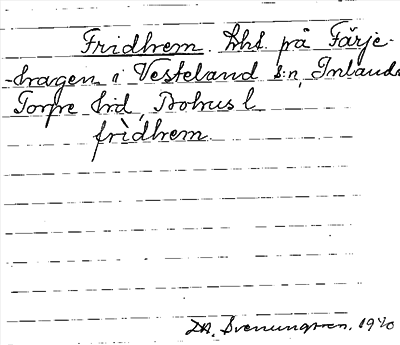 Fridhem. Lht. på Färje-
-hagen i Västerland s:n, Inlands
Torpe hd, Bohusl.
frìdhem.
D.A. Svenungsson. 1940